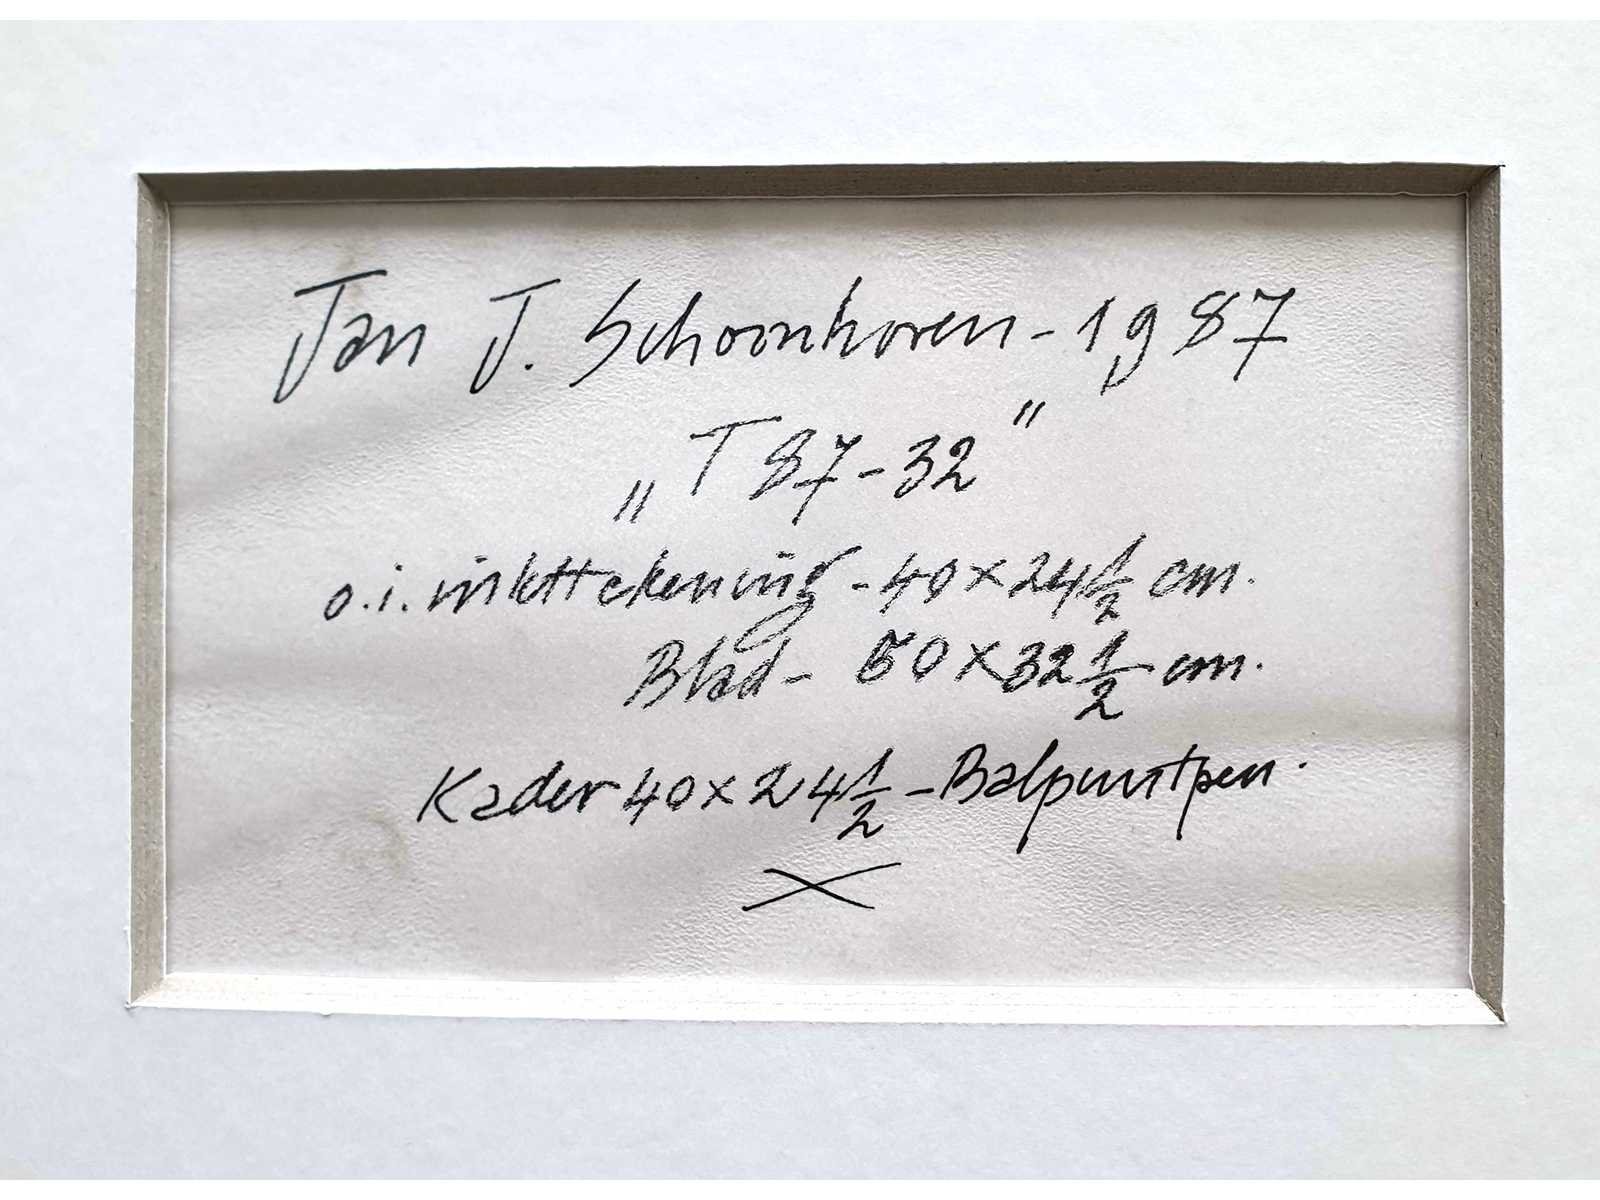 Jan J. Schoonhoven - 1987
„T 87-32"
o.i. inkttekening - 40 x 24 1/2 cm.
Blad - 50 x 32 1/2 cm.
Kader 40 x 24 1/2 - Balpuntpen.
X